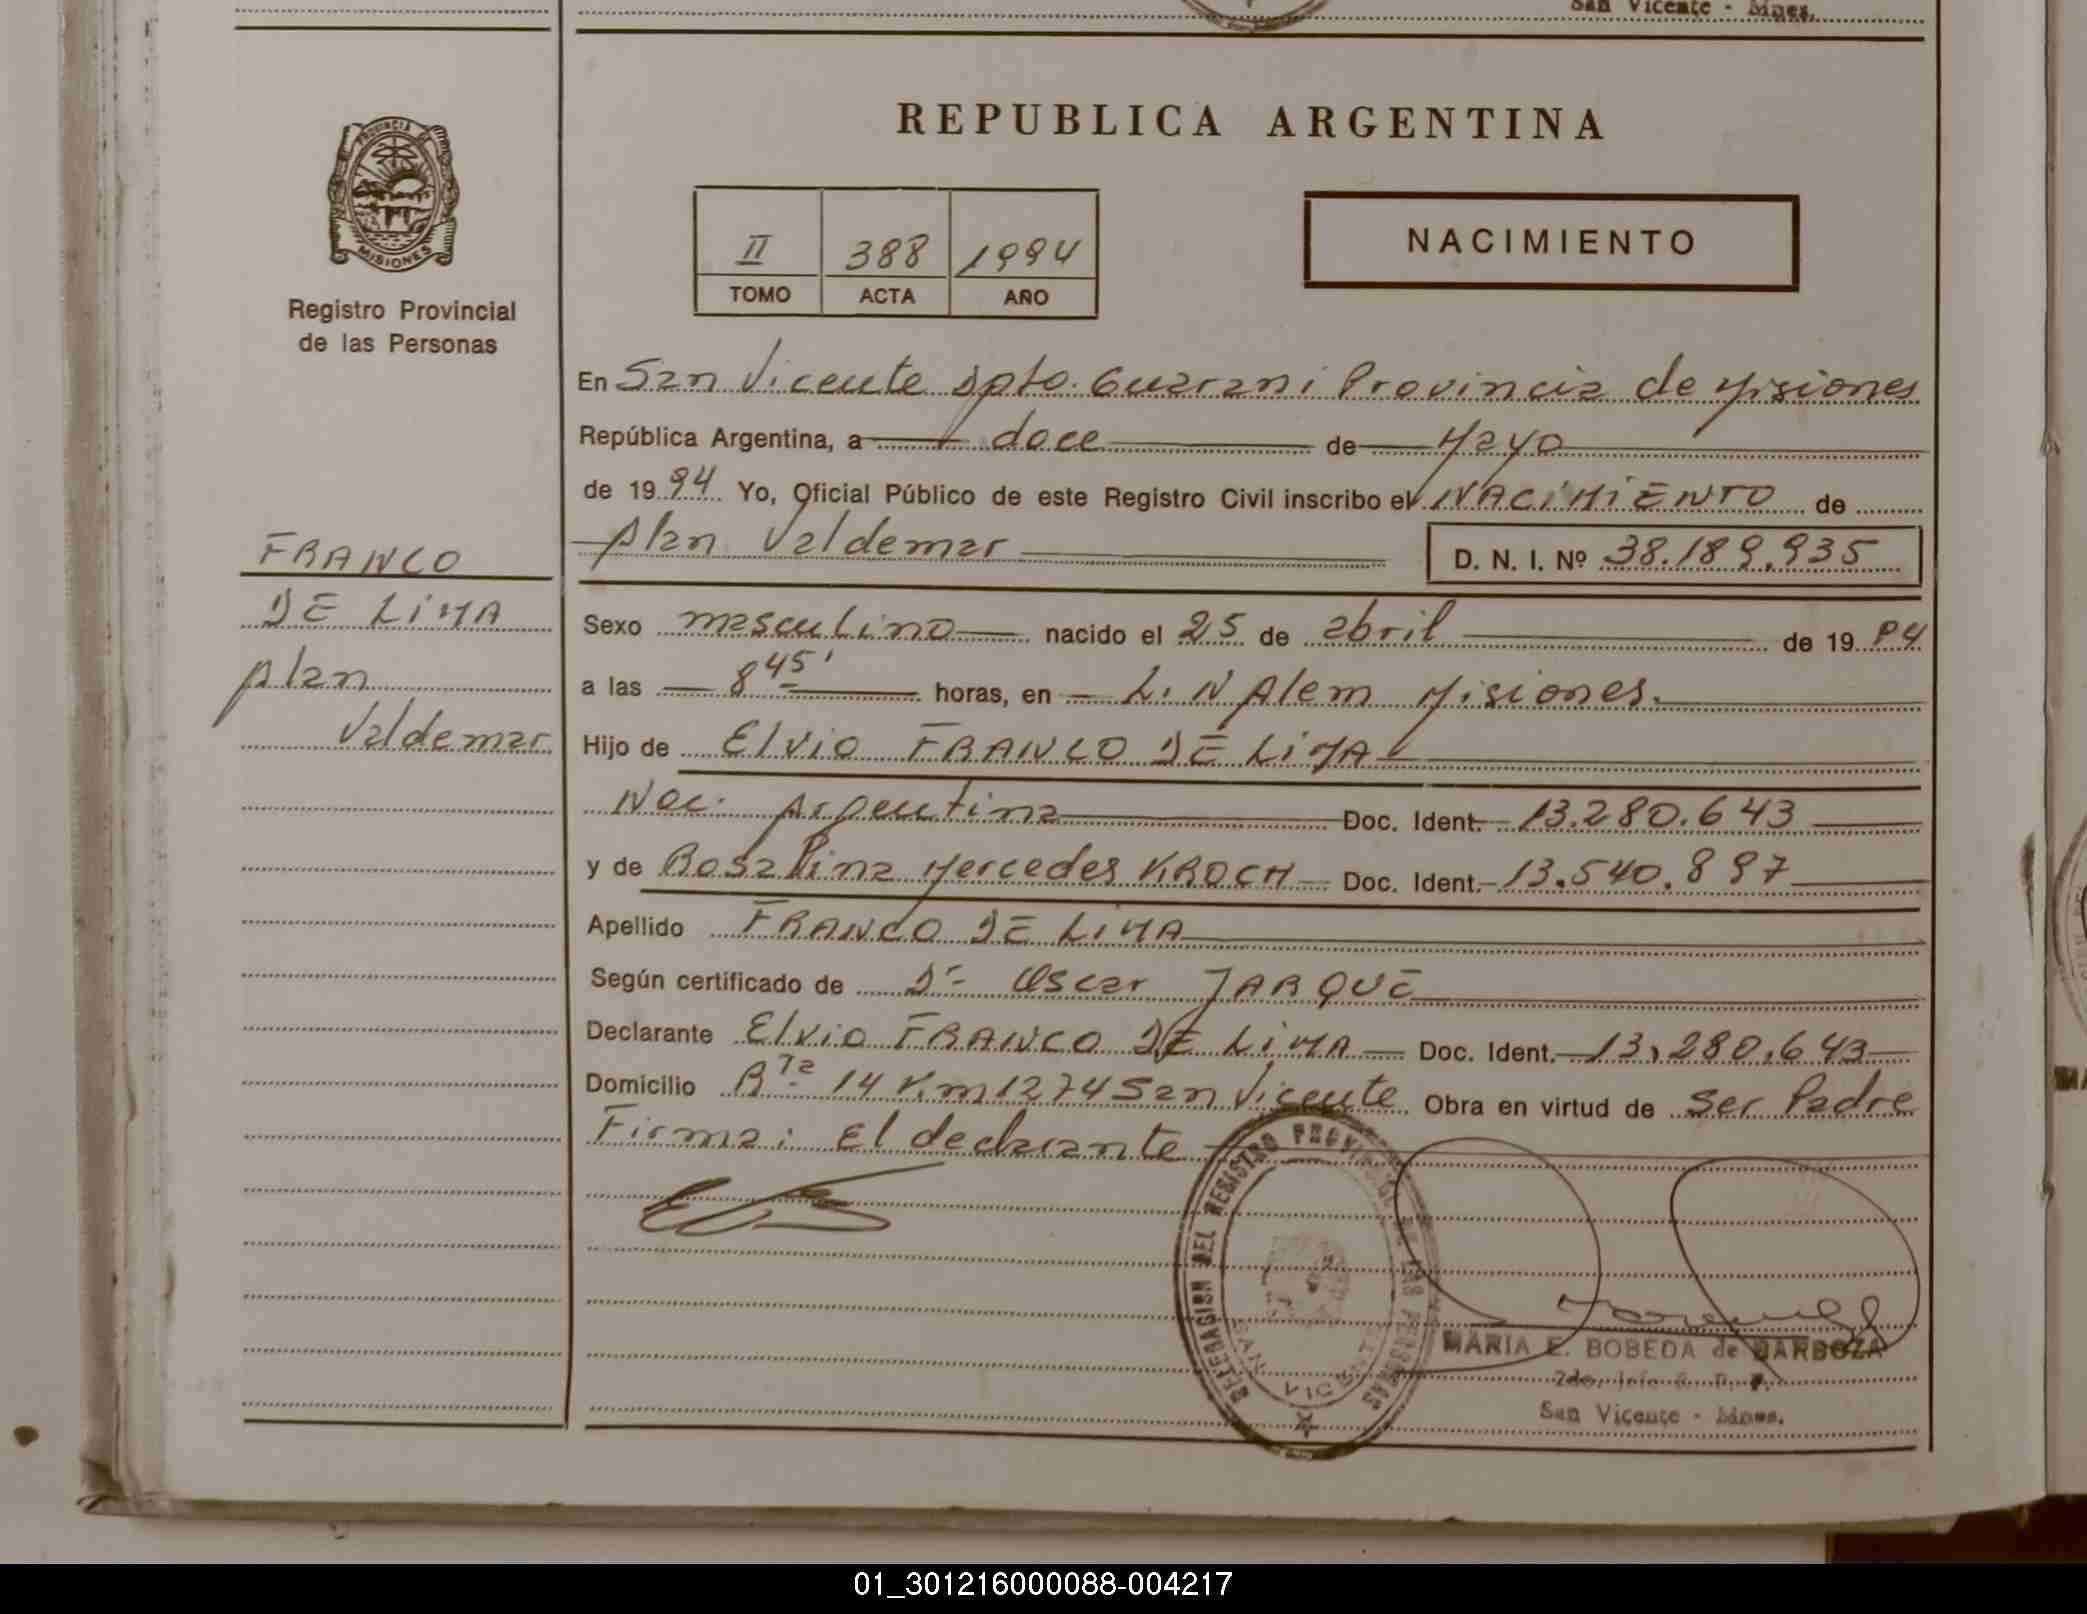 San Vicente - Mnes.
REPUBLICA ARGENTINA
PROVINCIA DE
MISIONES
Registro Provincial
de las Personas
II 388 1994
TOMO ACTA AÑO
NACIMIENTO
En San Vicente Dpto. Guarani Provincia de Misiones
República Argentina, a doce de Mayo
de 1994 Yo, Oficial Público de este Registro Civil inscribo el NACIMIENTO de
Alan Valdemar D. N. I. Nº 38.189.935
FRANCO
DE LIMA
Alan
Valdemar
Sexo masculino nacido el 25 de abril de 1994
a las 8 45' horas, en L. N Alem Misiones.
Hijo de Elvio FRANCO DE LIMA
Nac. Argentina Doc. Ident. 13.280.643
y de Rosalina Mercedes KROCH Doc. Ident. 13.540.897
Apellido FRANCO DE LIMA
Según certificado de Dr Oscar JARQUE
Declarante Elvio FRANCO DE LIMA Doc. Ident. 13.280.643
Domicilio Rta 14 Km 1274 San Vicente Obra en virtud de Ser Padre
Firma: El declarante
DELEGACION DEL REGISTRO PROVINCIAL DE LAS PERSONAS
SAN VICENTE
MARIA E. BOBEDA de BARBOZA
San Vicente - Mnes.
01_301216000088-004217